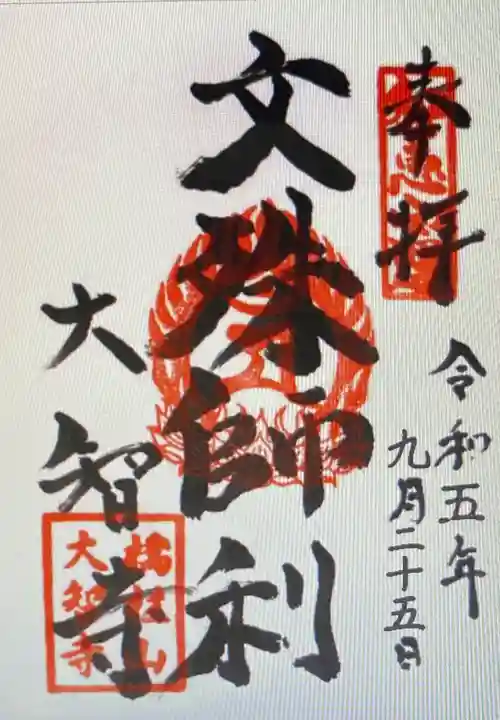 奉拝
令和五年
九月二十五日
文殊師利
大智寺
大智寺